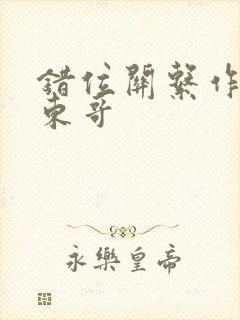 錯位關繫作
東哥
永樂皇帝